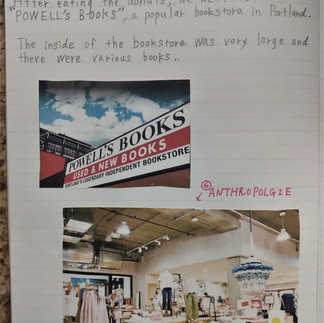 "After eating the donuts, we went
"POWELL's Books", a popular bookstore in Portland.
The inside of the bookstore was very large and
there were various books...
POWELL'S BOOKS
USED & NEW BOOKS
PORTLAND'S LEGENDARY INDEPENDENT BOOKSTORE
⑥ ANTHROPOLGIE